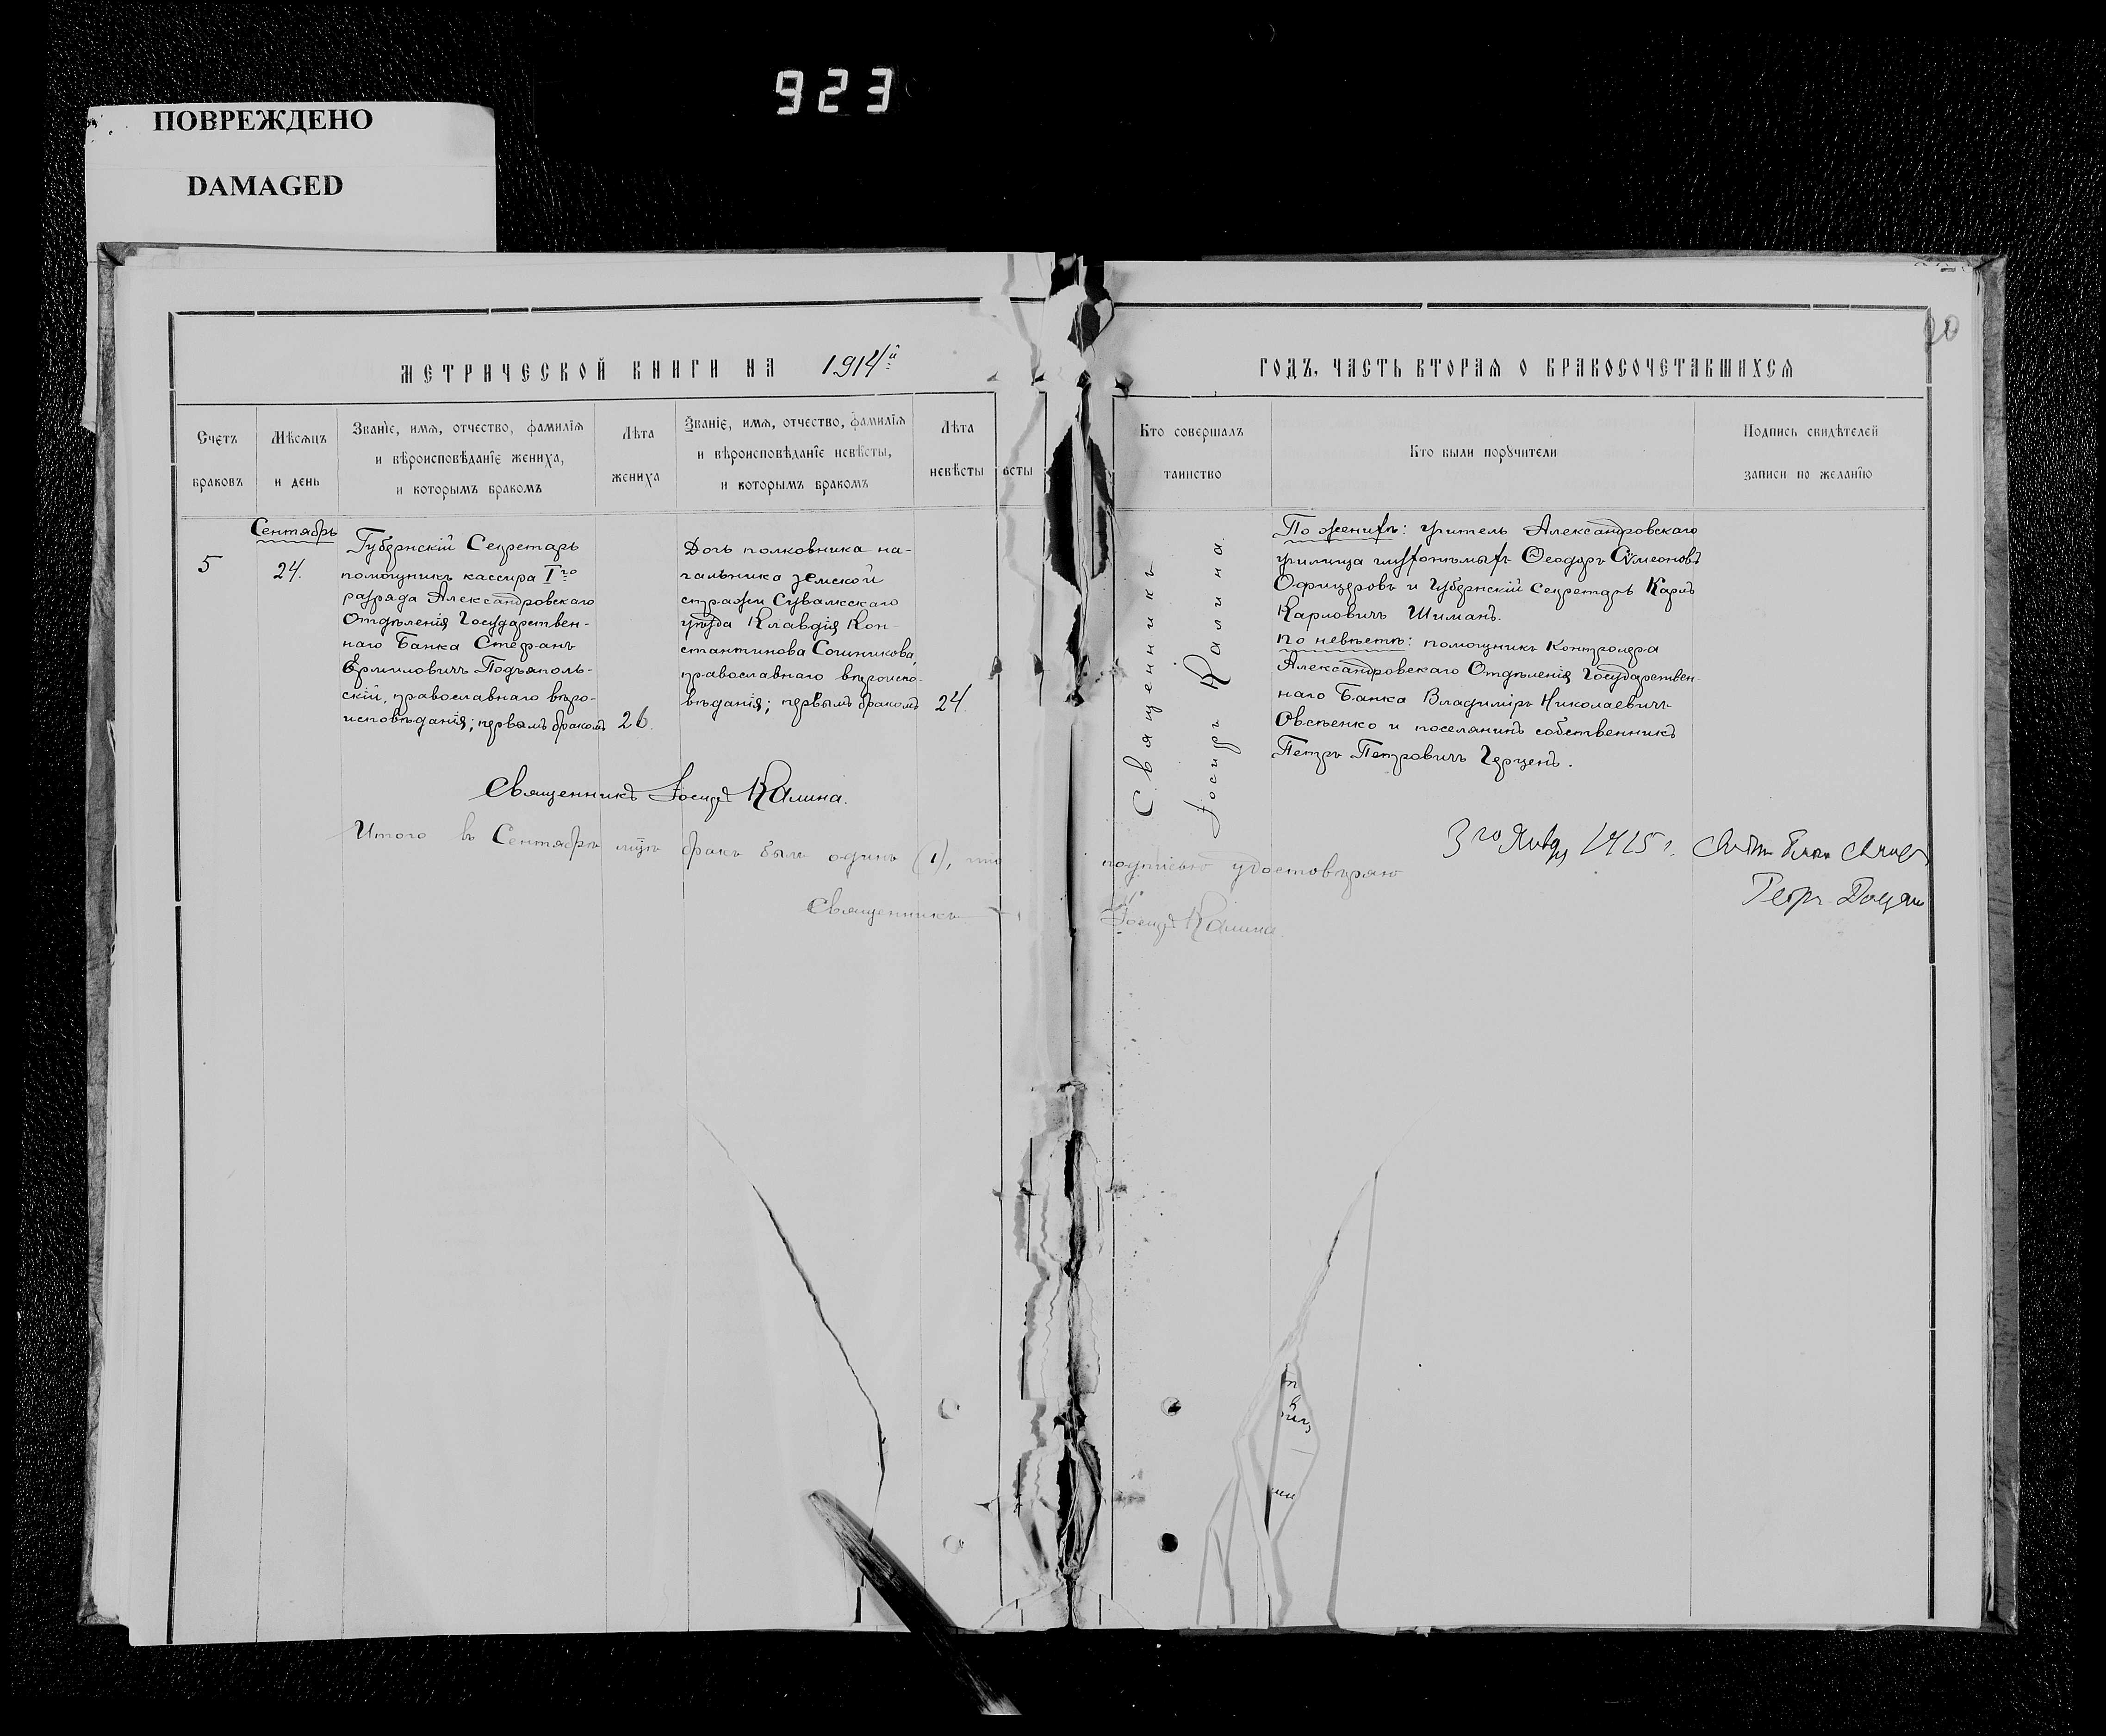 923
ПОВРЕЖДЕНО
DAMAGED
20
МЕТРИЧЕСКОЙ КНИГИ НА 1914й
ГОДЪ, ЧАСТЬ ВТОРАЯ О БРАКОСОЧЕТАВШИХСЯ
Счетъ
браковъ
Мѣсяцъ
и день
Званіе, имя, отчество, фамилія
и вѣроисповѣданіе жениха,
и которымъ бракомъ
Лѣта
жениха
Званіе, имя, отчество, фамилія
и вѣроисповѣданіе невѣсты,
и которымъ бракомъ
Лѣта
невѣсты
ѣсты
Кто совершалъ
таинство
Кто были поручители
Подпись свидѣтелей
записи по желанію
5
Сентябрь
24.
Губернскій Секретарь
помощникъ кассира I го
разряда Александровскаго
Отдѣленія Государствен-
наго Банка Стефанъ
Ермиловичъ Подъяполь-
скій, православнаго вѣро-
исповѣданія; первымъ бракомъ
26.
Дочь полковника на-
чальника земской
стражи Сувалкскаго
уѣзда Клавдія Кон-
стантинова Сочинникова,
православнаго вѣроиспо-
вѣданія; первымъ бракомъ
24.
Священникъ
Іосифъ Калина.
По женихѣ: учитель Александровскаго
училища глухонѣмыхъ Ѳеодоръ Сѵмеоновъ
Офицеровъ и Губернскій Секретарь Карлъ
Карловичъ Шиманъ.
по невѣстѣ: помощникъ Контролера
Александровскаго Отдѣленія Государствен-
наго Банка Владиміръ Николаевичъ
Овсѣенко и поселянинъ собственникъ
Петръ Петровичъ Герценъ.
Священникъ Іосифъ Калина.
Итого въ Сентябрѣ мцѣ бракъ былъ одинъ (1), что
подписью удостовѣряю
Священникъ
Іосифъ Калина
3го Янв 1915 г.
Георг